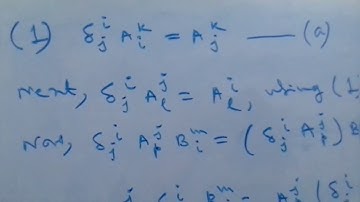 (1) δ^i_j A^k_i = A^k_j —— (a)
next, δ^i_j A^j_l = A^i_l, using (1
Now, δ^i_j A^j_p B^m_i = (δ^i_j A^j_p) B